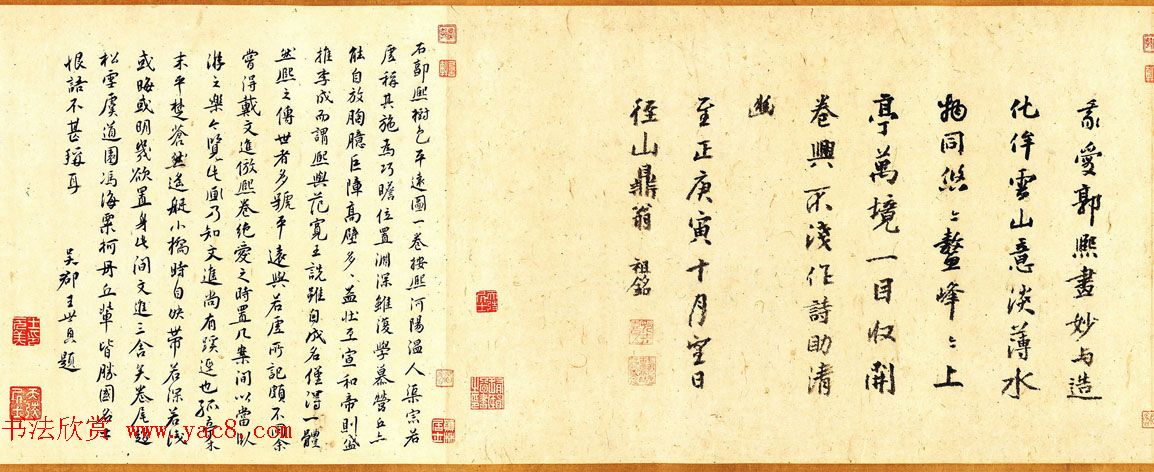 我愛郭熙畫妙与造
化侔雲山意淡薄水
物同悠〻鼇峰〻上
亭萬境一目収開
卷興不淺作詩助清
幽
至正庚寅十月望日
徑山鼎翁 祖銘
右郭熙樹色平遠圖一卷按熙河陽溫人渠宗若
虛稱其施為巧贍位置淵深雖復學慕營丘亦
能自放胸臆巨障高壁多〻益壯至宣和帝則盛
推李成而謂熙與范寬王詵雖自成名僅得一體
然熙之傳世者多號平遠與若虛所記頗不同余
嘗得戴文進倣熙卷絕愛之時置几案間以當臥
游之樂今覽此圖乃知文進尚有蹊逕也孤亭
末平楚蒼然遙艇小橋時自映帶若深若淺
或晦或明幾欲置身此間文進三舍矣卷尾趙
松雪虞道園馮海粟柯丹丘輩皆勝國名士
恨語不甚稱耳
吳郡王世貞題
书法欣赏 www.yac8.com